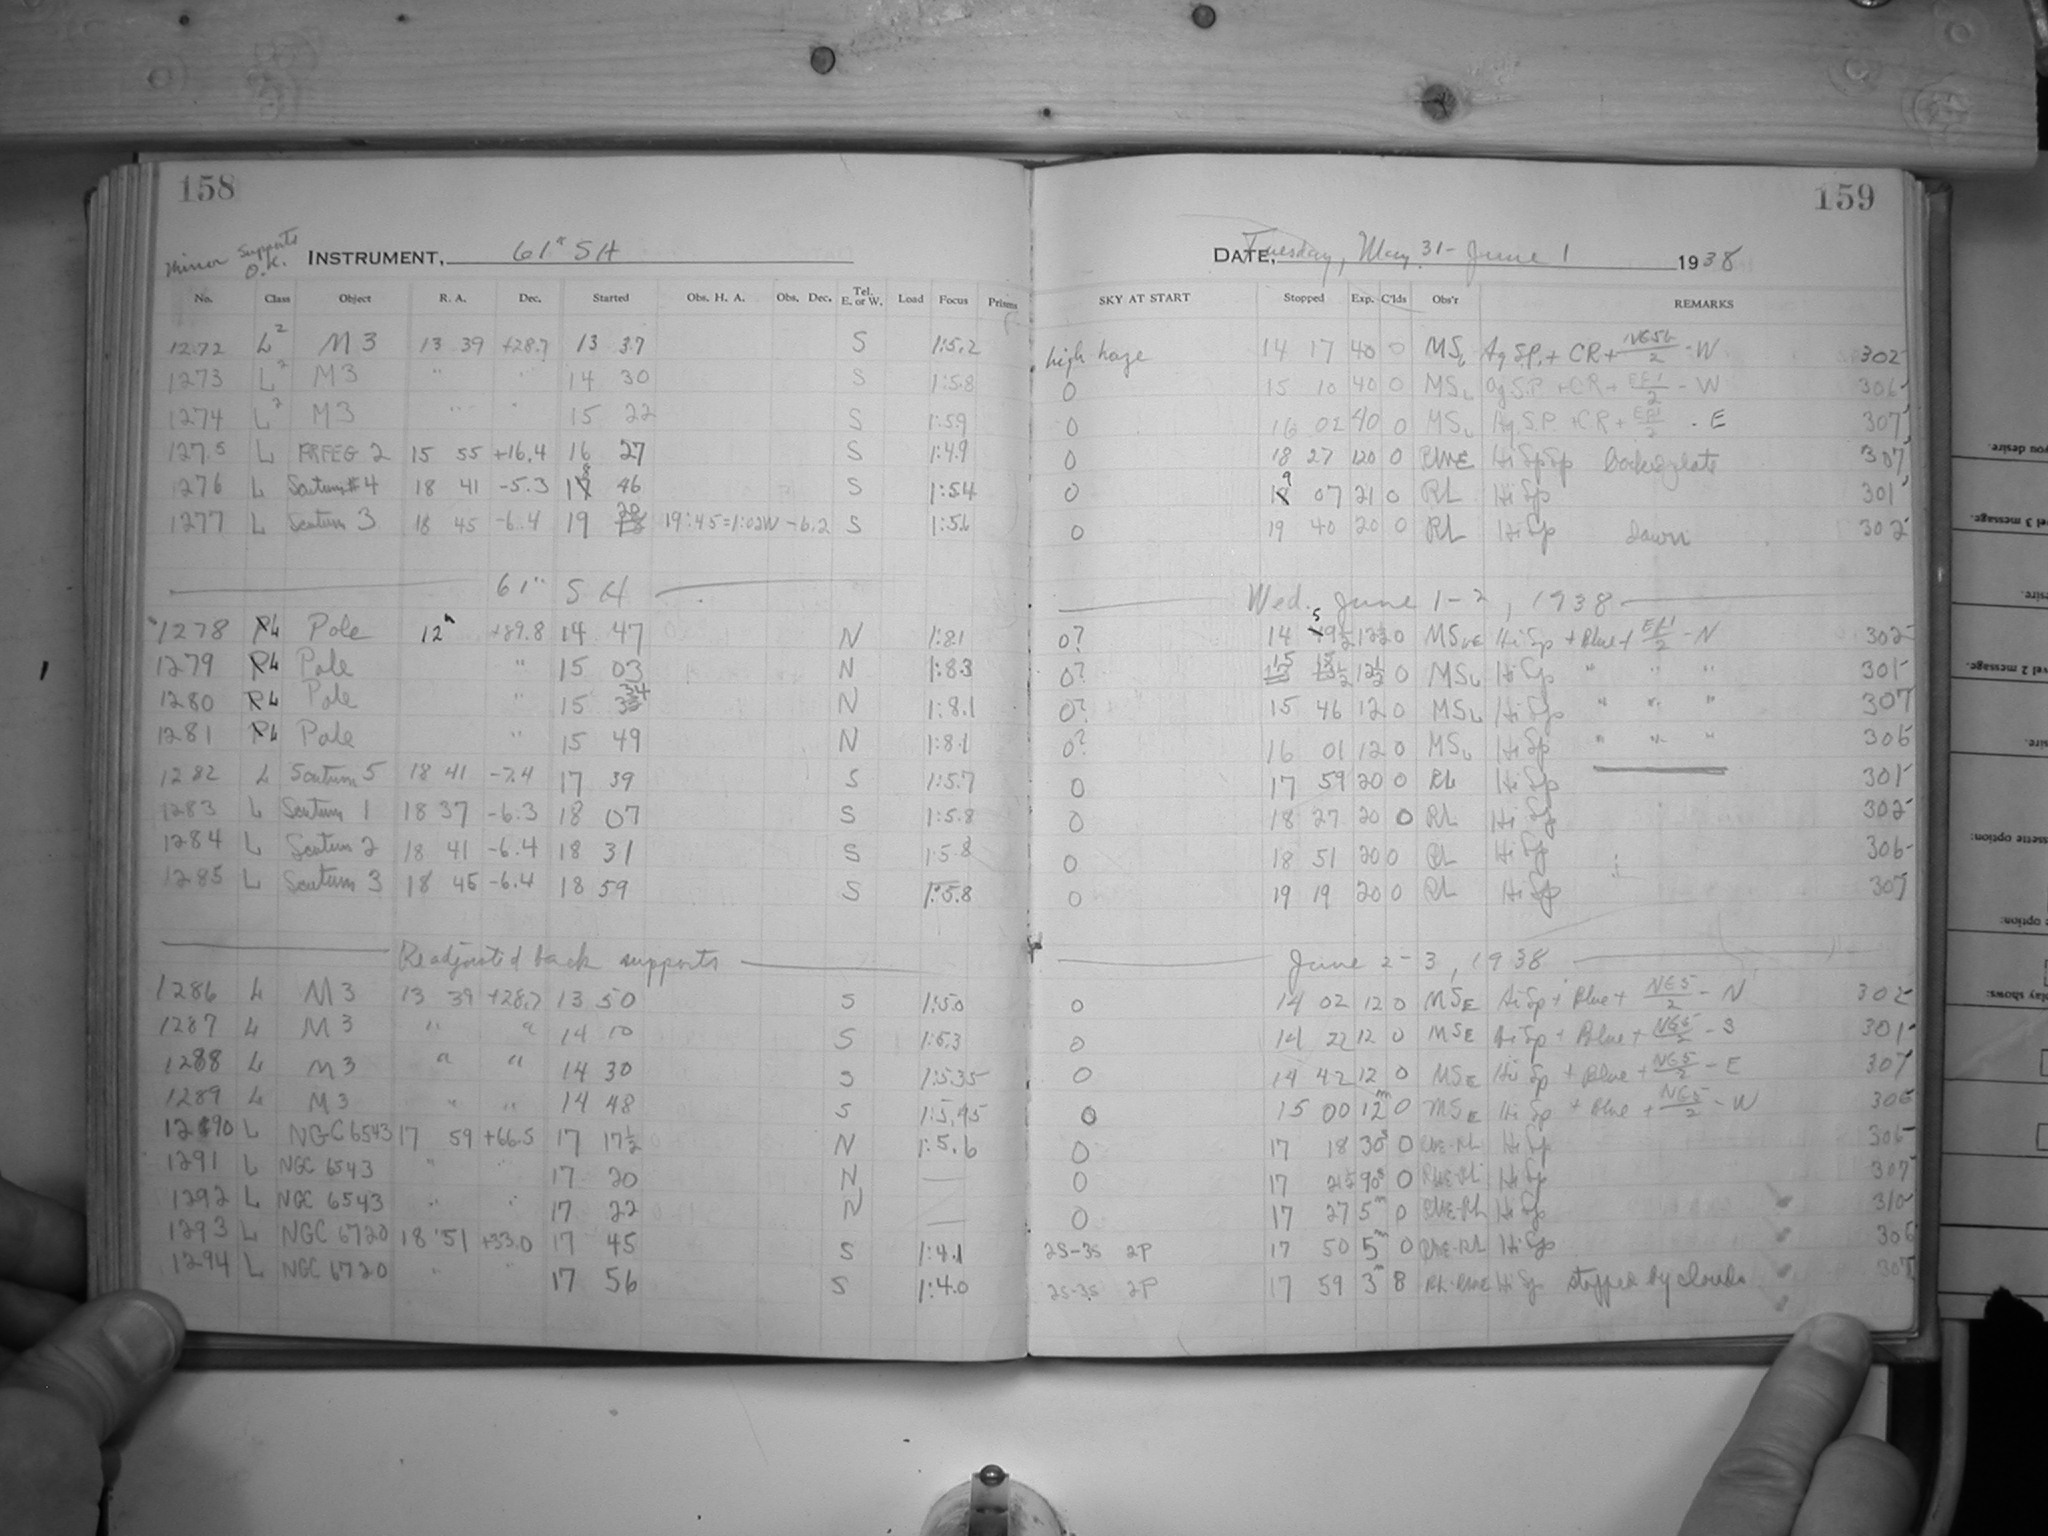 158
159
Mirror Supports O.K.
INSTRUMENT, 61" SH
DATE, Tuesday, May 31 - June 1 1938
No. Class Object R. A. Dec. Started Obs. H. A. Obs. Dec. Tel. E. or W. Load Focus Prisms SKY AT START Stopped Exp. C'lds Obs'r REMARKS
1272 L² M3 13 39 +28.7 13 37 S 1:5.2 high haze 14 17 40 0 W 302
1273 L² M3 " " 14 30 S 1:5.8 0 15 10 40 0 - W 306
1274 L² M3 " " 15 22 S 1:59 0 16 02 40 0 - E 307
1275 L 2 15 55 +16.4 16 27 S 1:4.9 0 18 27 120 0 307
1276 L Scutum #4 18 41 -5.3 18 46 S 1:54 0 19 07 21 0 RL Hi Sp 301
1277 L Scutum 3 18 45 -6.4 19 20 19:45=1:02W -6.2 S 1:56 0 19 40 20 0 RL Hi Sp Dawn 302
61" SH Wed. June 1-2, 1938
1278 L Pole 12h +89.8 14 47 N 1:81 0? 14 12½ 0 Hi Sp + Blue + - N 302
1279 L Pole " 15 03 N 1:83 0? 15 12½ 0 MS Hi Sp " " " 301
1280 L Pole " 15 34 N 1:8.1 0? 15 46 12 0 MS Hi Sp " " " 307
1281 L Pole " 15 49 N 1:8.1 0? 16 01 12 0 MS Hi Sp " " " 306
1282 L Scutum 5 18 41 -7.4 17 39 S 1:5.7 0 17 59 20 0 RL Hi Sp 301
1283 L Scutum 1 18 37 -6.3 18 07 S 1:5.8 0 18 27 20 0 RL Hi Sp 302
1284 L Scutum 2 18 41 -6.4 18 31 S 1:5.8 0 18 51 20 0 RL Hi Sp 306
1285 L Scutum 3 18 45 -6.4 18 59 S 1:5.8 0 19 19 20 0 RL Hi Sp 307
Readjusted back supports June 2-3, 1938
1286 L M3 13 39 +28.7 13 50 S 1:50 0 14 02 12 0 MSE Hi Sp + Blue + NG5/2 - N 302
1287 L M3 " " 14 10 S 1:5.3 0 14 22 12 0 MSE Hi Sp + Blue + NG5/2 - S 301
1288 L M3 " " 14 30 S 1:5.35 0 14 42 12 0 MSE Hi Sp + Blue + NG5/2 - E 307
1289 L M3 " " 14 48 S 1:5.45 0 15 00 12m 0 MSE Hi Sp + Blue + NG5/2 - W 306
1290 L NGC 6543 17 59 +66.5 17 17½ N 1:5.6 0 17 18 30s 0 Hi Sp 306
1291 L NGC 6543 " " 17 20 N — 0 17 90s 0 Hi Sp 307
1292 L NGC 6543 " " 17 22 N — 0 17 27 5m 0 Hi Sp 310
1293 L NGC 6720 18 51 +33.0 17 45 S 1:4.1 2S-3S 2P 17 50 5m 0 Hi Sp 306
1294 L NGC 6720 " " 17 56 S 1:4.0 2S-3S 2P 17 59 3m 8 Hi Sp stopped by clouds 307
you desire.
vel 3 message.
sire.
vel 2 message.
sire.
ssette option:
e option:
play shows: